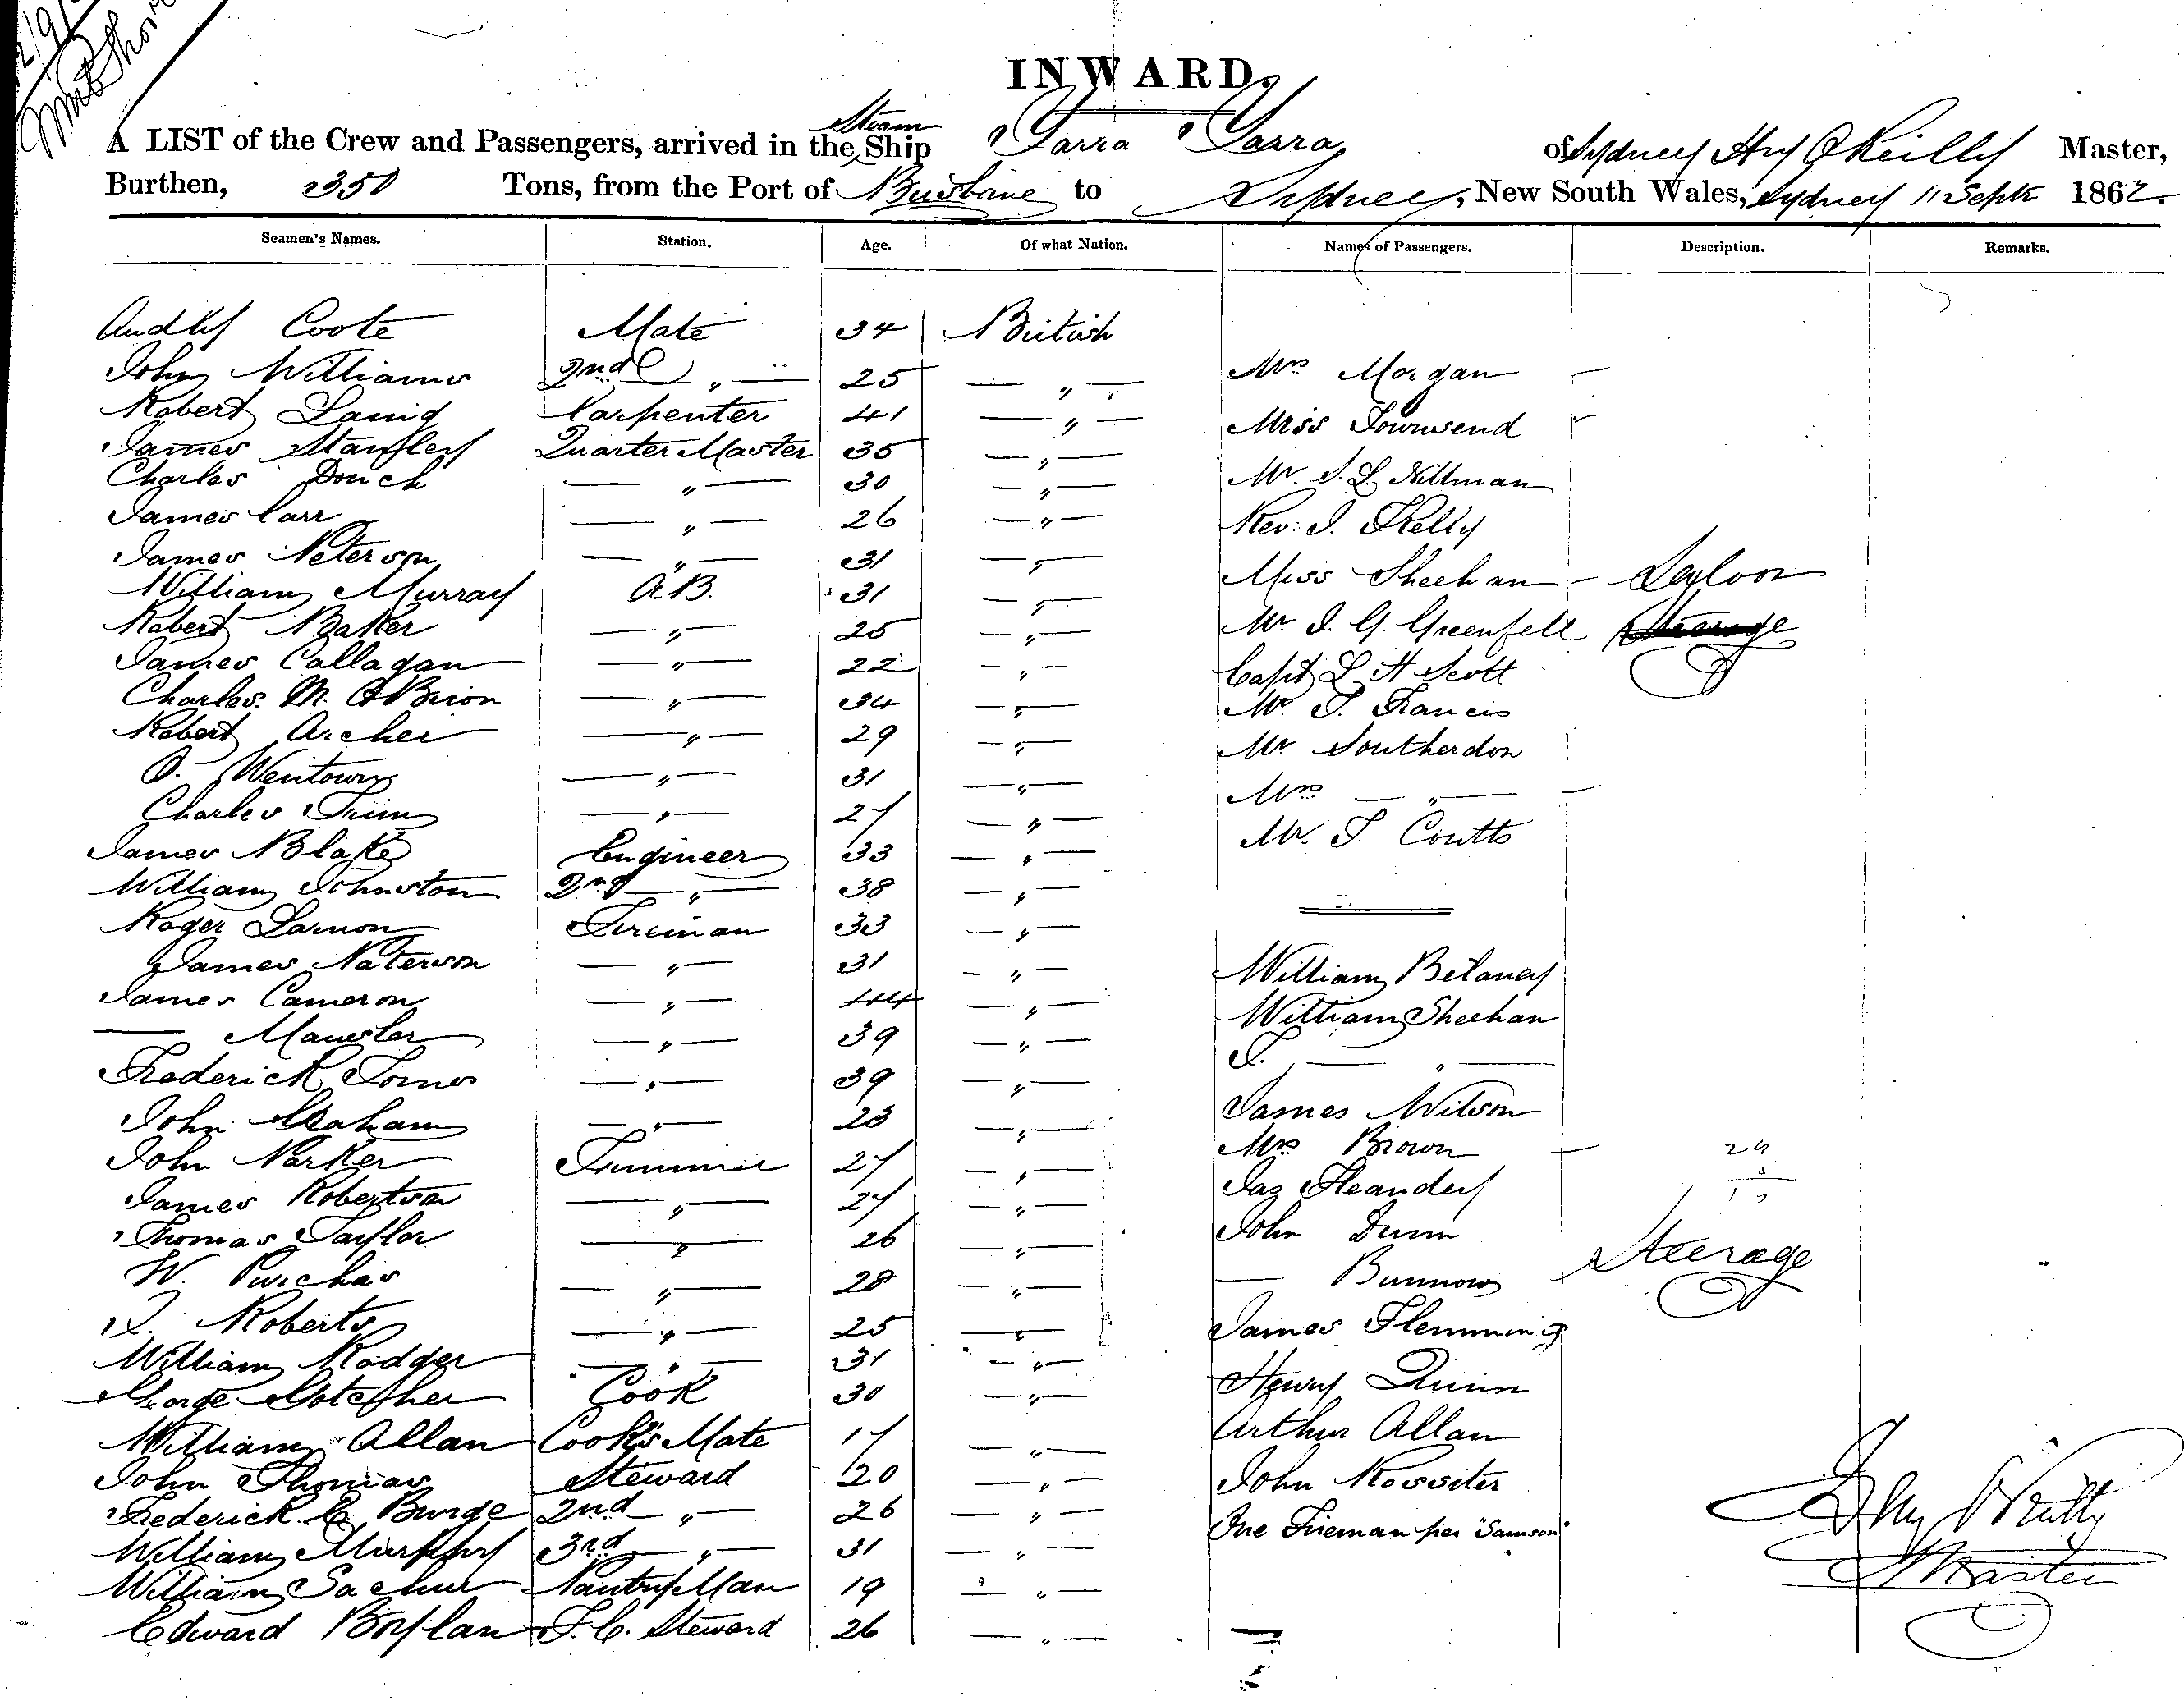 INWARD.
A LIST of the Crew and Passengers, arrived in the Steam Ship Yarra Yarra of Sydney Hy O'Reilly Master,
Burthen, 350 Tons, from the Port of Brisbane to Sydney, New South Wales, Sydney 11 Septr 1862.
Seamen's Names. Station. Age. Of what Nation. Names of Passengers. Description. Remarks.
Audley Coote Mate 34 British
John Williams 2nd " 25 " Mrs Morgan
Robert Laing Carpenter 41 " Miss Townsend
James Stanley Quarter Master 35 "
Charles Douch " 30 " Mr. Hillman
James Carr " 26 " Rev: J. Kelly
James Peterson " 31 "
William Murray A.B. 31 " Miss Sheehan Saloon
Robert Baker " 25 " Mr. J. G. Greenfell Steerage
James Callagan " 22 " Capt L H Scott
Charles. M. O'Brion " 34 " Mr. Francis
Robert Archer " 29 " Mr Southerdon
31 " Mrs "
Charles Trim " 27 " Mr. Coutts
James Blake Engineer 33 "
William Johnston 2nd " 38 "
Roger Larnon Fireman 33 "
James Paterson " 31 " William Belaney
James Cameron " 44 " William Sheehan
" 39 " "
Frederick Jones " 39 "
John Graham " 23 " James Wilson
John Parker Trimmer 27 " Mrs Brown
James Robertson " 27 " Jas
Thomas Taylor " 26 " John Dunn
W. Purchas " 28 " Steerage
Roberts " 25 " James Flemming
William Rodger " 31 "
George Cook 30 " Henry Quinn
William Allan Cook's Mate 17 " Arthur Allan
John Thomas Steward 20 " John Rossiter
Frederick. C. Burge 2nd " 26 " One Fireman per "Samson"
William Murphy 3rd " 31 "
William Pantry Man 19 "
Edward Boylan F.C. Steward 26 "
Hy O'Reilly
Master